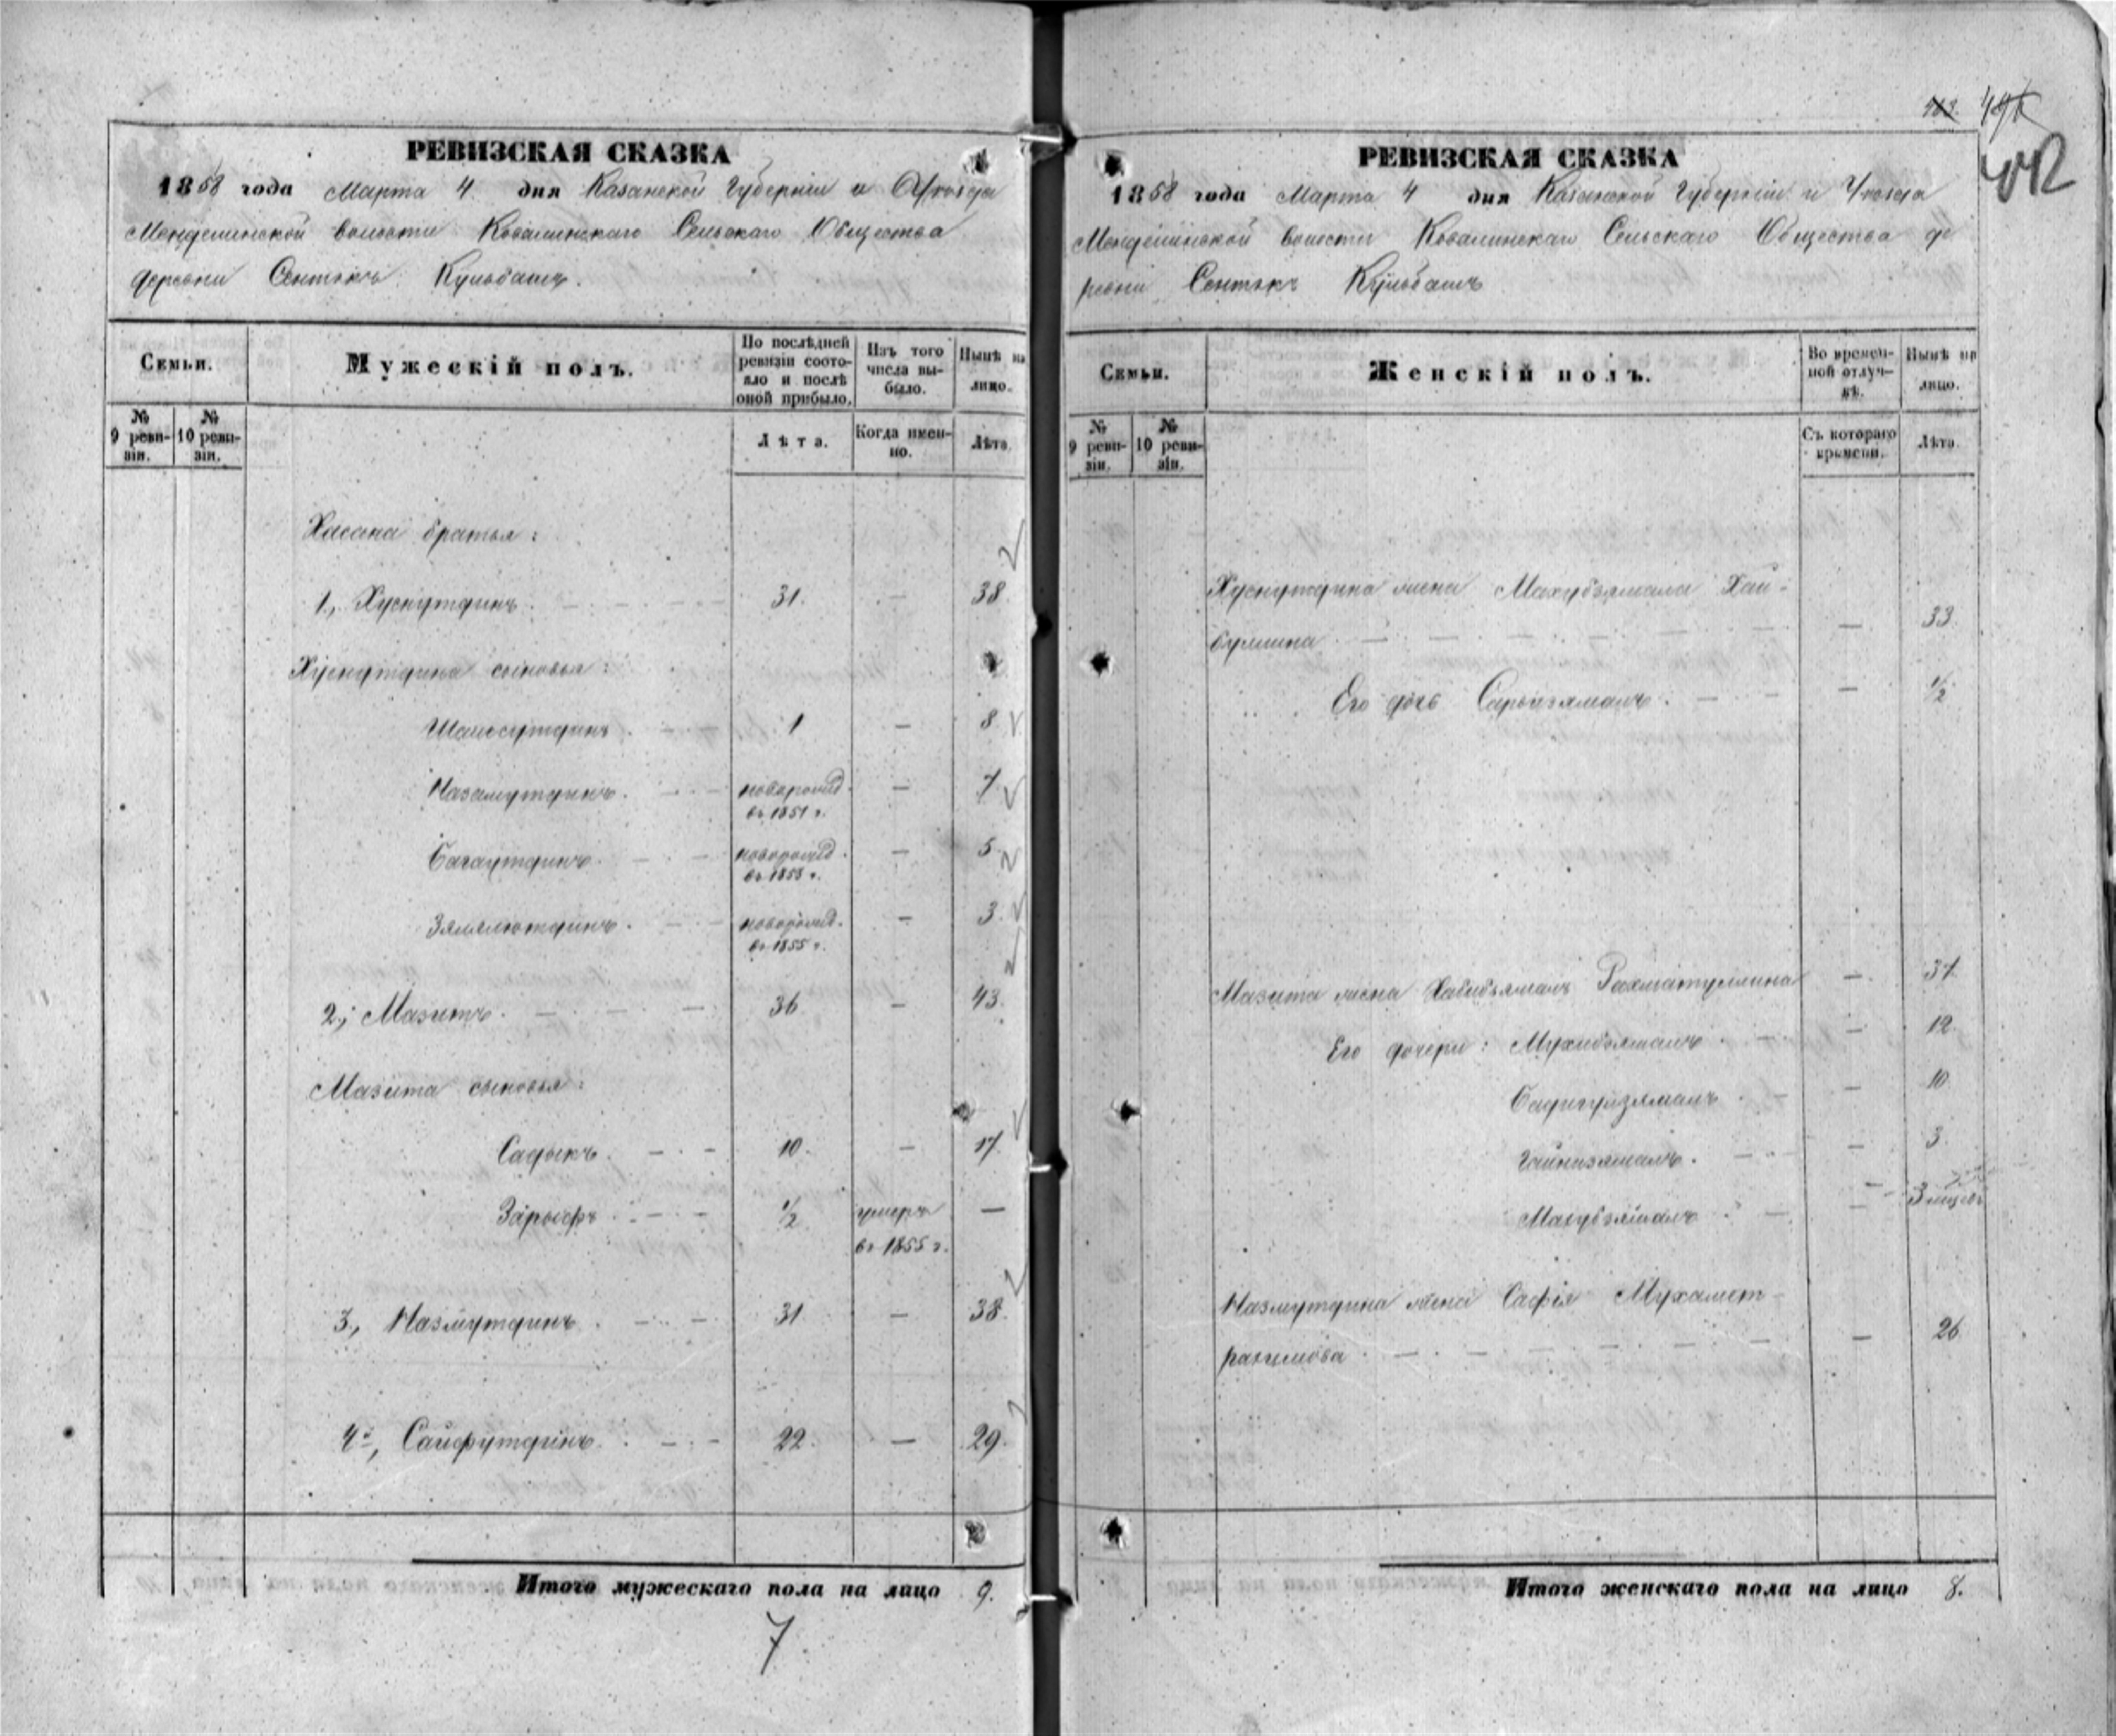 РЕВИЗСКАЯ СКАЗКА
1858 года Марта 4 дня Казанской Губерніи и Уѣзда
Менделинской волости Ковалинскаго Сельскаго Общества
деревни Сентякъ Кульбашъ.
Семьи.
Мужескій полъ.
По послѣдней ревизіи состояло и послѣ оной прибыло.
Изъ того числа выбыло.
Нынѣ на лицо.
№ 9 ревизіи.
№ 10 ревизіи.
Лѣта.
Когда именно.
Лѣта
Хасана братья:
1, Хуснутдинъ. 31. — 38.
Хуснутдина сыновья:
1 — 8
Назамутдинъ. новорожд. — 7
въ 1851 г.
Багаутдинъ. новорожд. — 5.
въ 1853 г.
Зялялютдинъ. новорожд. — 3.
въ 1855 г.
2, Мазитъ. 36 — 43.
Мазита сыновья:
Садыкъ. 10. — 17.
Зарыфъ 1/2 умеръ —
въ 1855 г.
3, Назмутдинъ. 31 — 38.
4, Сайфутдинъ. 22. — 29.
Итого мужескаго пола на лицо 9.
7
442
РЕВИЗСКАЯ СКАЗКА
1858 года Марта 4 дня Казанской Губерніи и Уѣзда
Менделинской волости Ковалинскаго Сельскаго Общества де
ревни Сентякъ Кульбашъ
Семьи.
Женскій полъ.
Во временной отлучкѣ.
Нынѣ на лицо.
№ 9 ревизіи.
№ 10 ревизіи.
Съ котораго времени.
Лѣта.
Хуснутдина жена Махубзямала Хай-
буллина — 33.
Его дочь Сарыизямалъ. — 1/2
Мазита жена Хабибзямалъ Рахматуллина — 37.
Его дочери: Мухибзямалъ. — 12.
Бадигулзямалъ. — 10
Гайнизямалъ. — 3.
Махубзямалъ — 3 мѣсяц.
Назмутдина жена Сафія Мухамет-
рахимова — 26
Итого женскаго пола на лицо 8.